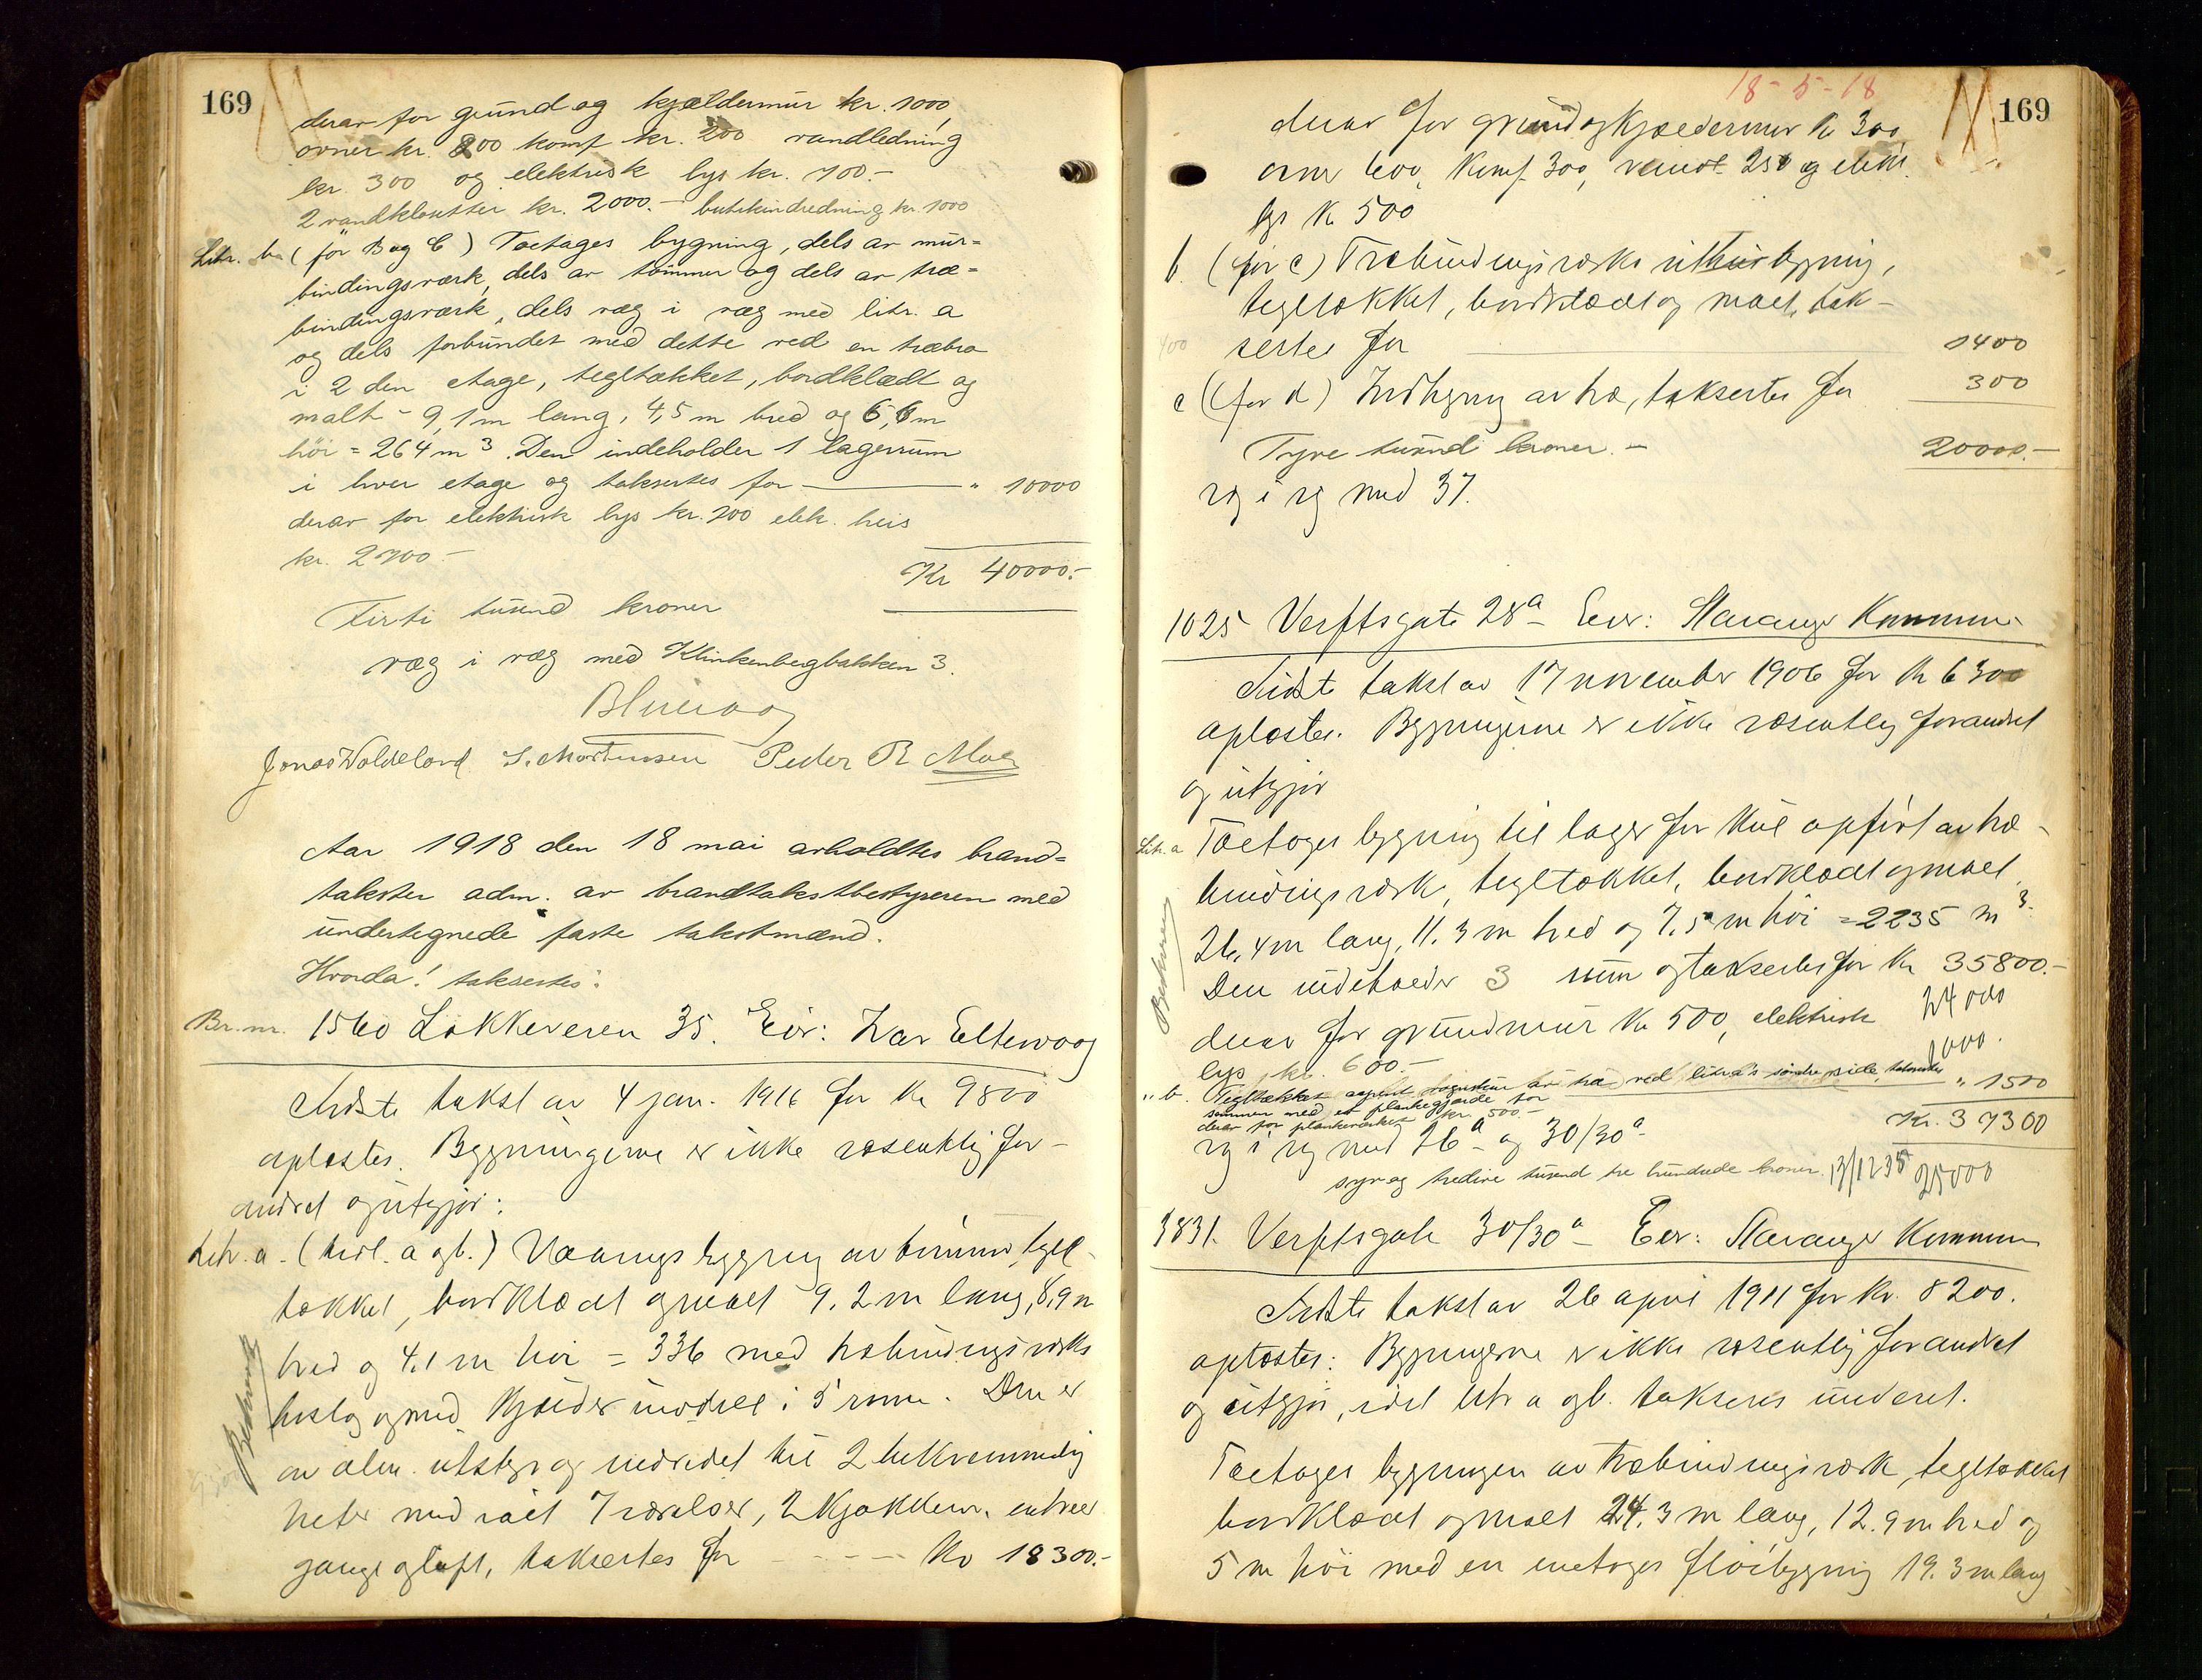 169
derav for grund og kjældermur kr. 1000,
ovner kr. 800 komf kr. 200 vandledning
kr. 300 og elektrisk lys kr. 700.-
2 vandklosetter kr. 2000.- butikindredning kr. 1000
Litr. b (før B og C) Toetages bygning, dels av mur-
bindingsværk, dels av tømmer og dels av træ-
bindingsværk, dels væg i væg med litr. a
og dels forbundet med dette ved en træbro
i 2 den etage, tegltækket, bordklædt og
malt - 9,1 m lang, 4,5 m bred og 6,6 m
høi = 264 m3. Den indeholder 1 lagerrum
i hver etage og takseres for " 10000
derav for elektrisk lys kr. 200 elek. heis
kr. 2700-
Kr 40000.-
Firti tusend kroner
væg i væg med Klinkenbergbakken 3.
Jonas Woldeland S. Mortensen Peder R. Moen
Aar 1918 den 18 mai avholdtes brand-
takster adm. av brandtakstbestyreren med
undertegnede faste takstmænd.
Hvorda! taksertes:
Br. nr. 1560 Løkkeveien 35. Eier: Ivar Eltervaag
Sidste takst av 4 jan. 1916 for kr 9800
oplæstes. Bygningerne er ikke væsentlig for-
andret og utgjør:
Litr. a. (tidl. a og b.) Vaaningsbygning av tømmer, tegl-
tækket, bordklædt og malt 9.2 m lang, 8,9 m
bred og 4.1 m høi = 336 med træbindingsværks
kvist og med kjælder inddelt i 5 rum. Den er
av alm. utstyr og indredet til 2 bekvemmelig
heter med ialt 7 værelser, 2 kjøkken, entreer
gange og loft, taksertes for - - - - Kr 18300.-
Beskrevet
18-5-18
169
derav for grund og kjældermur kr 300,
ovner 600, komf 300, vandl. 250 og elektr.
lys kr 500
b. (før c) Træbindingsværks uthusbygning,
tegltækket, bordklædt og malt, tak-
sertes for 1400
400
c (før d) Indhegning av træ, taksertes for 300
Tyve tusend kroner.- 20000.-
væg i væg med 37.
1025 Verftsgate 28a - Eier: Stavanger Kommune
Sidste takst av 17 november 1906 for kr 6300
oplæstes. Bygningerne er ikke væsentlig forandret
og utgjør
Litr. a Toetages bygning til lager for kul opført av træ-
bindingsværk, tegltækket, bordklædt og malt
26,4 m lang, 11.3 m bred og 7.5 m høi = 2235 m3.
Den indeholder 3 rum og taksertes for kr 35800.-
derav for grundmur kr 500, elektrisk 24000
lys kr. 600.- 1000.
Beskrevet
" b. Tegltækket aapent vognskur av træ ved litra a's søndre side, taksertes " 1500
sammen med et plankegjærde for
derav for plankeværket kr. 500.-
Kr. 37300
væg i væg med 26a og 30/30a
syv og tredive tusend tre hundrede kroner. 13/12 35 25000
3831. Verftsgate 30/30a - Eier: Stavanger Kommune
Sidste takst av 26 april 1911 for kr. 8200.
oplæstes: Bygningerne er ikke væsentlig forandret
og utgjør, idet litr a og b. takseres under et.
Toetages bygningen av træbindingsværk, tegltækket
bordklædt og malt 24.3 m lang, 12.9 m bred og
5 m høi med en enetages fløibygning 19.3 m lang